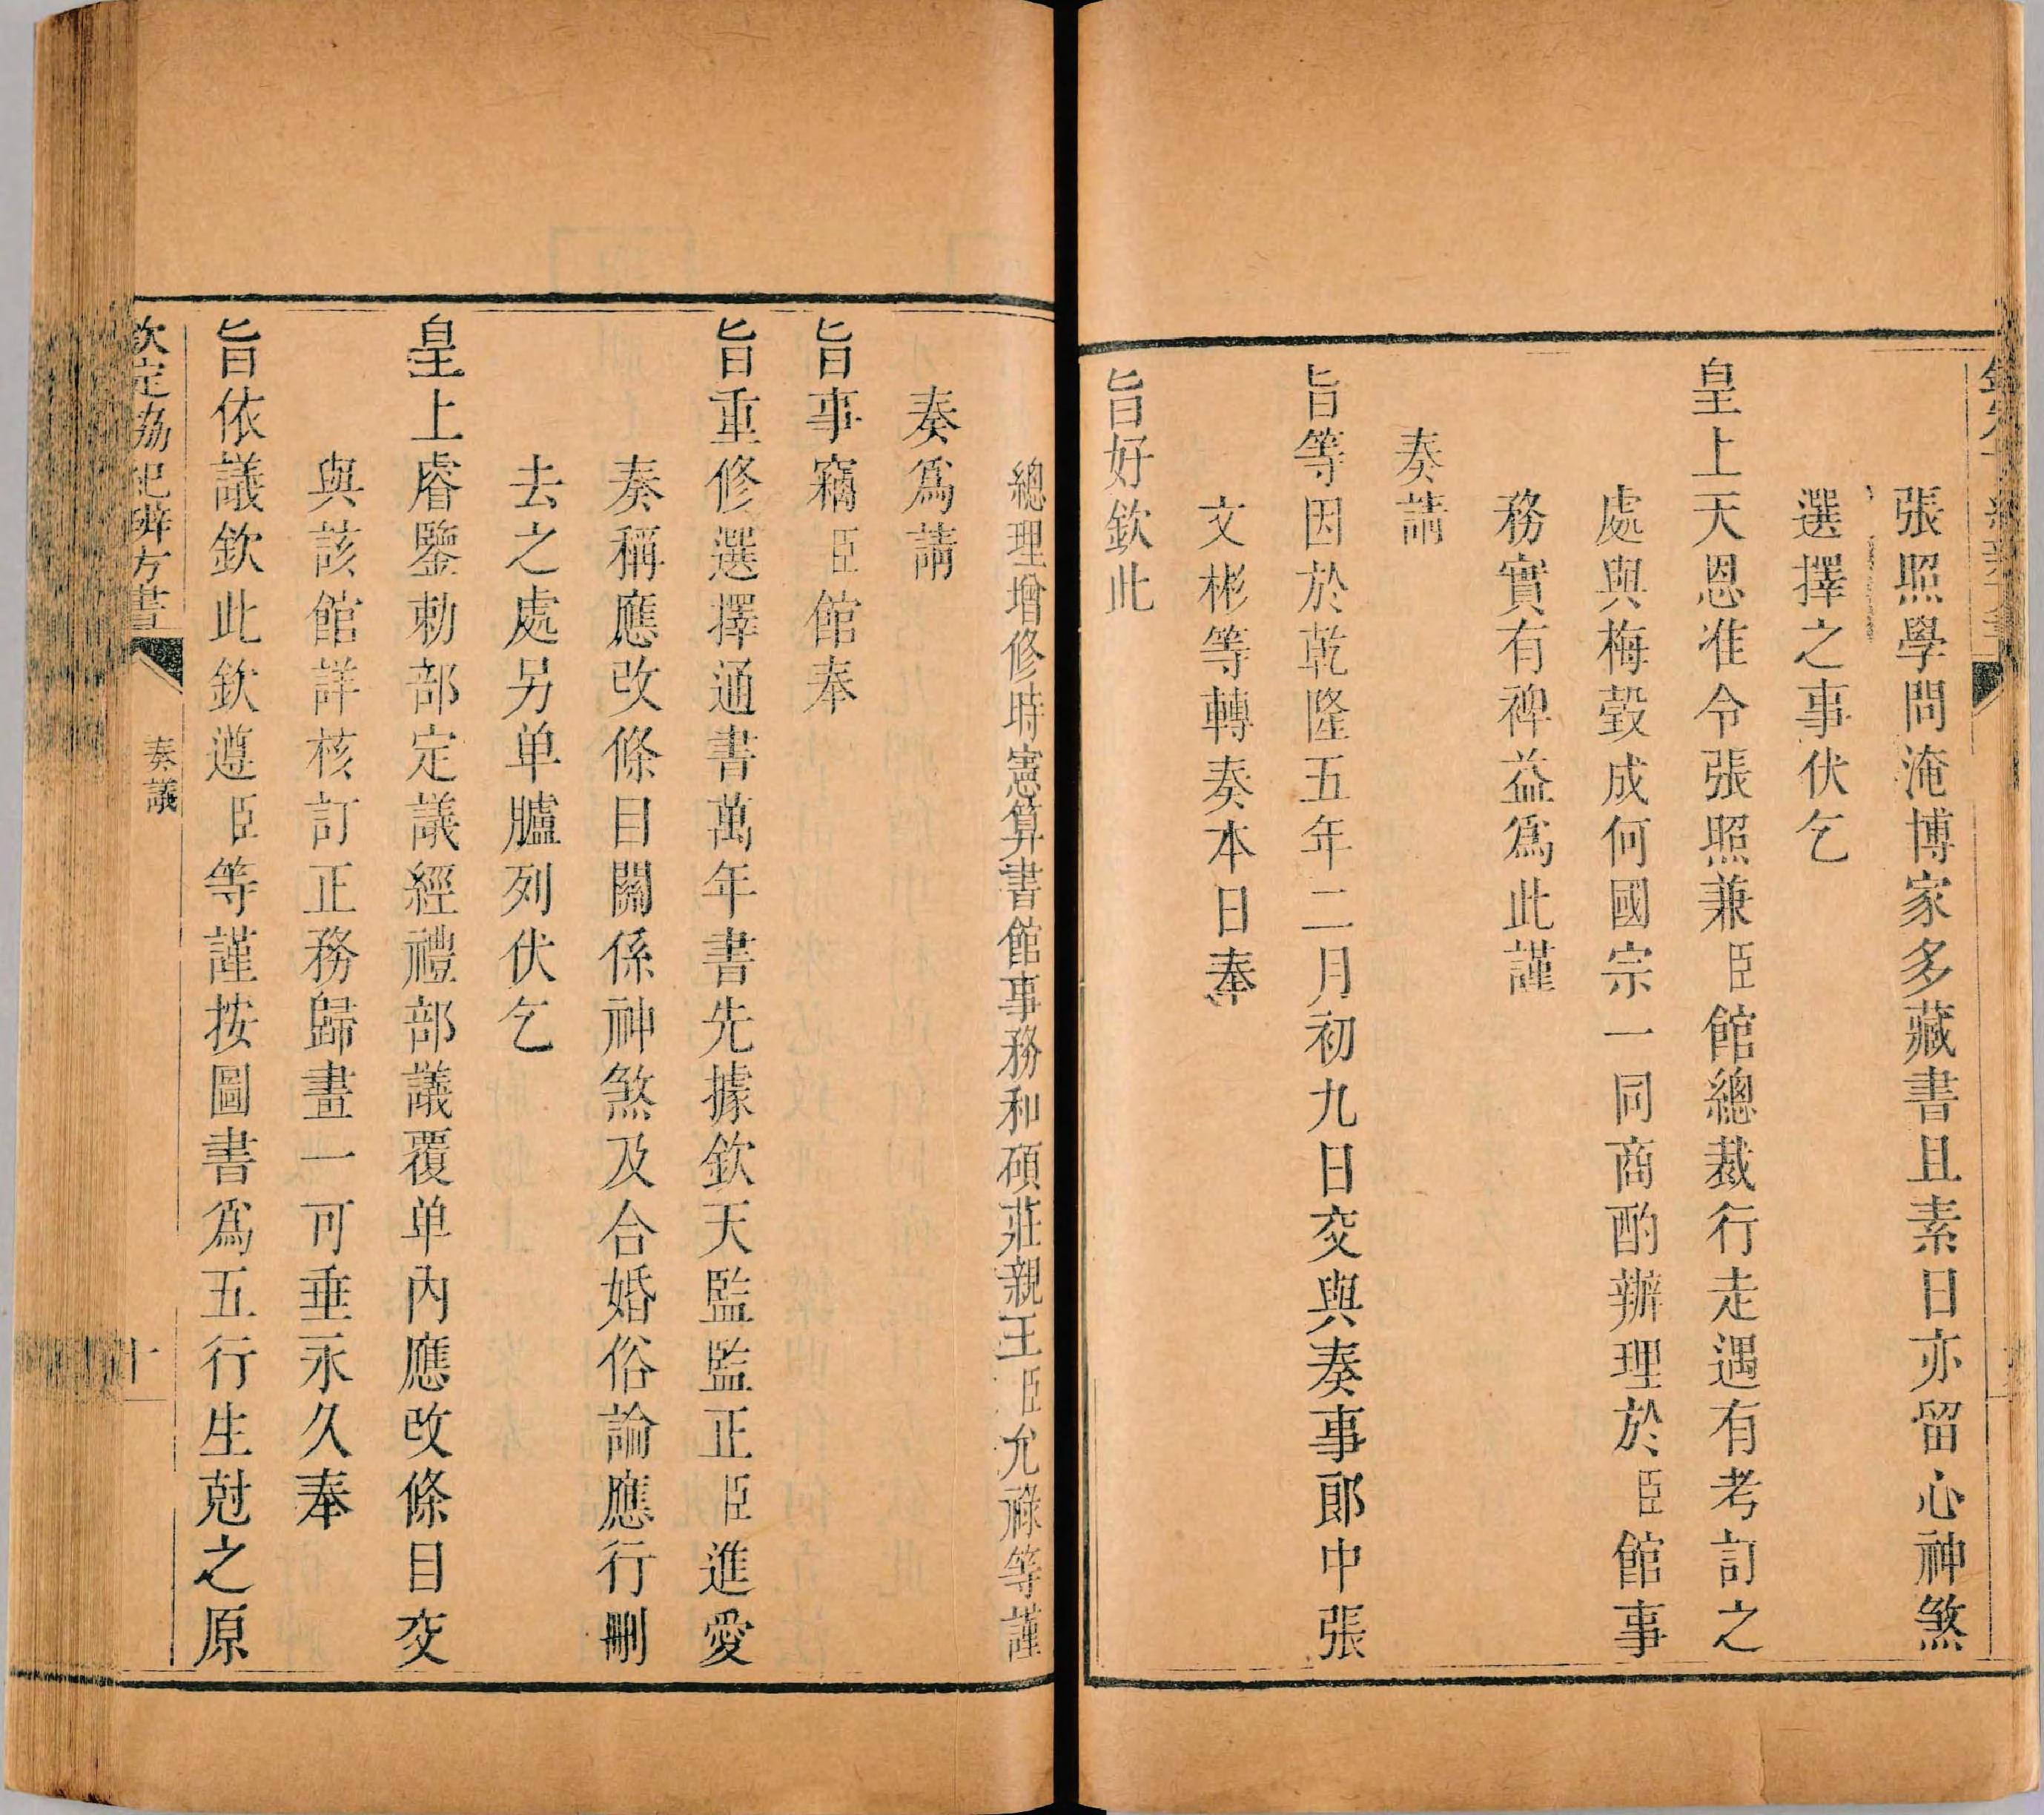 張照學問淹博家多藏書且素日亦留心神煞
選擇之事伏乞
皇上天恩准令張照兼臣館總裁行走遇有考訂之
處與梅瑴成何國宗一同商酌辦理於臣館事
務實有裨益爲此謹
奏請
旨等因於乾隆五年二月初九日交與奏事郎中張
文彬等轉奏本日奉
旨好欽此
總理增修時憲算書館事務和碩莊親王臣允祿等謹
奏爲請
旨事竊臣館奉
旨重修選擇通書萬年書先據欽天監監正臣進愛
奏稱應改條目關係神煞及合婚俗論應行刪
去之處另单臚列伏乞
皇上睿鑒勅部定議經禮部議覆单內應改條目交
與該館詳核訂正務歸畫一可垂永久奉
旨依議欽此欽遵臣等謹按圖書爲五行生尅之原
欽定協紀辨方書
奏議
十